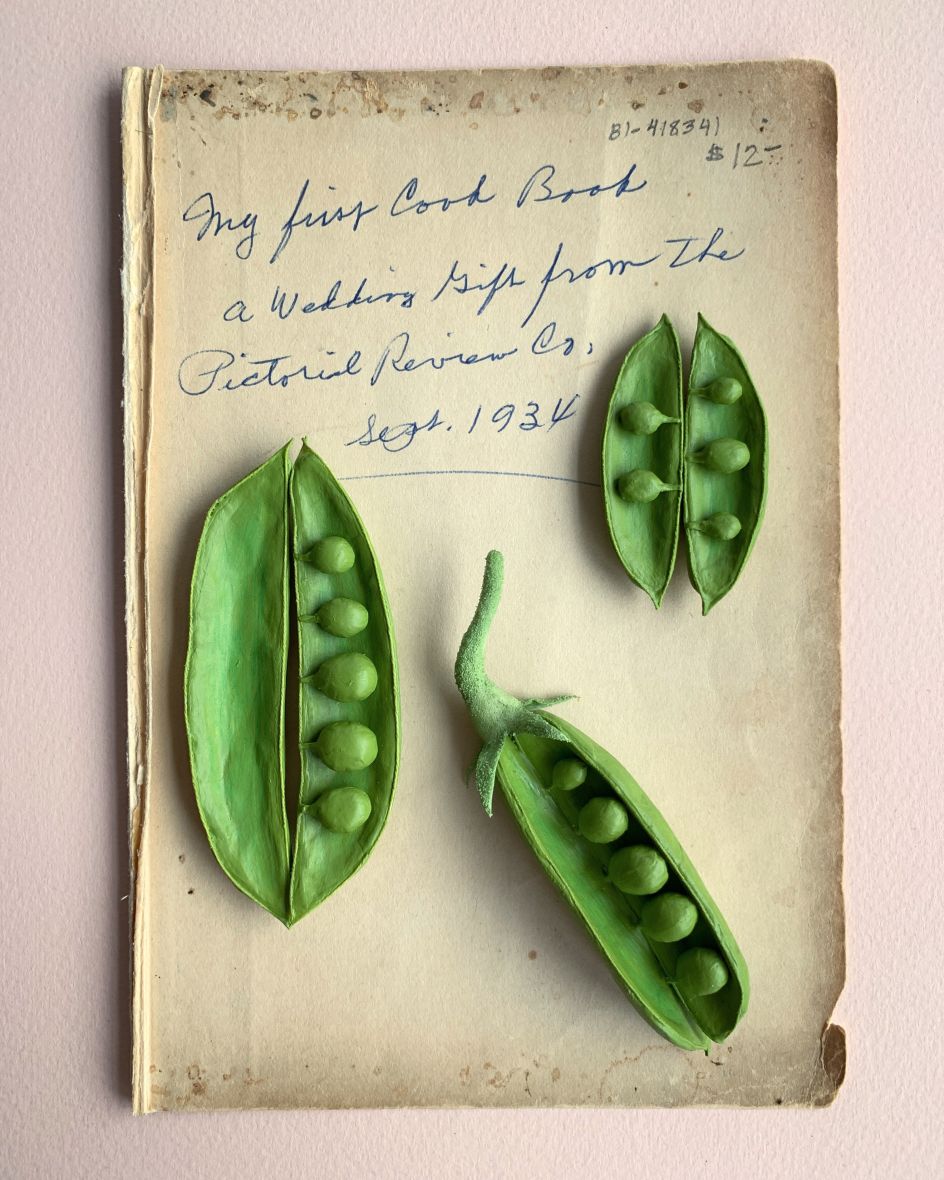 B1-418341
$12-
My first Cook Book
a Wedding Gift from The
Pictorial Review Co.
Sept. 1934